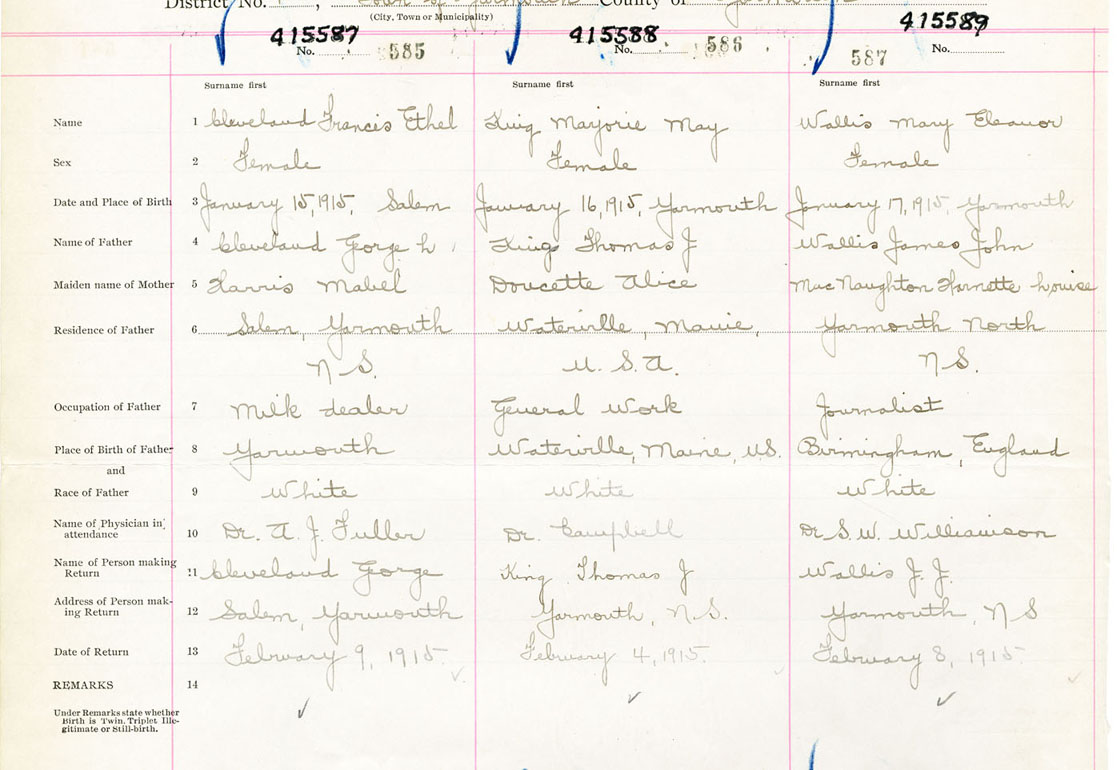 District No. 1, Town of Yarmouth County of Yarmouth
(City, Town or Municipality)
415587 415588 415589
No. 585 No. 586 587 No.
Surname first Surname first Surname first
Name 1 Cleveland Francis Ethel King Marjorie May Wallis Mary Eleanor
Sex 2 Female Female Female
Date and Place of Birth 3 January 15, 1915, Salem January 16, 1915, Yarmouth January 17, 1915, Yarmouth
Name of Father 4 Cleveland George H King Thomas J Wallis James John
Maiden name of Mother 5 Harris Mabel Doucette Alice MacNaughton Harnette Louise
Residence of Father 6 Salem, Yarmouth Waterville, Maine, Yarmouth North
N S. U. S. A. N S.
Occupation of Father 7 Milk dealer General Work Journalist
Place of Birth of Father 8 Yarmouth Waterville, Maine, U.S. Birmingham, England
and
Race of Father 9 White White White
Name of Physician in
attendance 10 Dr. A. J. Fuller Dr. Campbell Dr S. W. Williamson
Name of Person making
Return 11 Cleveland George King Thomas J Wallis J. J.
Address of Person mak-
ing Return 12 Salem, Yarmouth Yarmouth, N.S. Yarmouth, N S
Date of Return 13 February 9, 1915. February 4, 1915. February 8, 1915.
REMARKS 14
Under Remarks state whether
Birth is Twin, Triplet Ille-
gitimate or Still-birth.